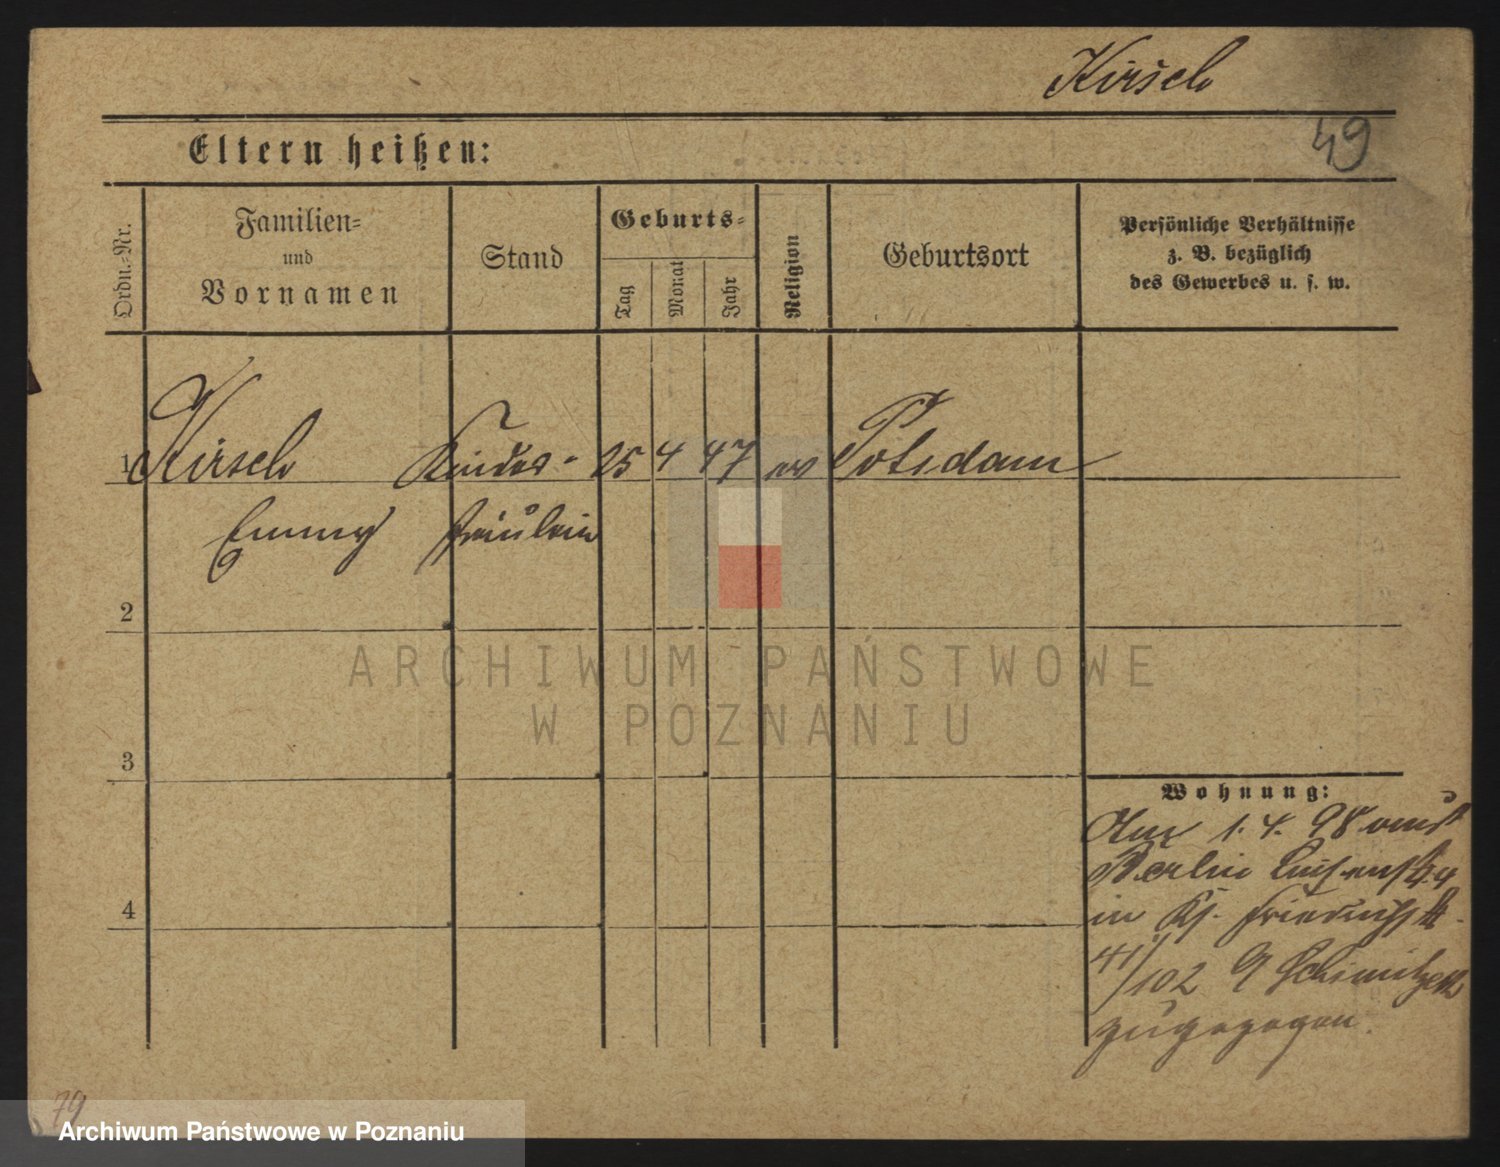 Kirsch
49
Eltern heißen:
Ordn.-Nr.
Familien-
und
Vornamen
Stand
Geburts-
Tag
Monat
Jahr
Religion
Geburtsort
Persönliche Verhältnisse
z. B. bezüglich
des Gewerbes u. s. w.
1 Kirsch Kinder- 25 4 47 ev Potsdam
Emmy fräulein
2
ARCHIWUM PAŃSTWOWE
W POZNANIU
3
Wohnung:
Am 1. 4. 98 von
Berlin Luisenstr.
4
in Friedrichstr.
41/102
zugezogen.
79
Archiwum Państwowe w Poznaniu